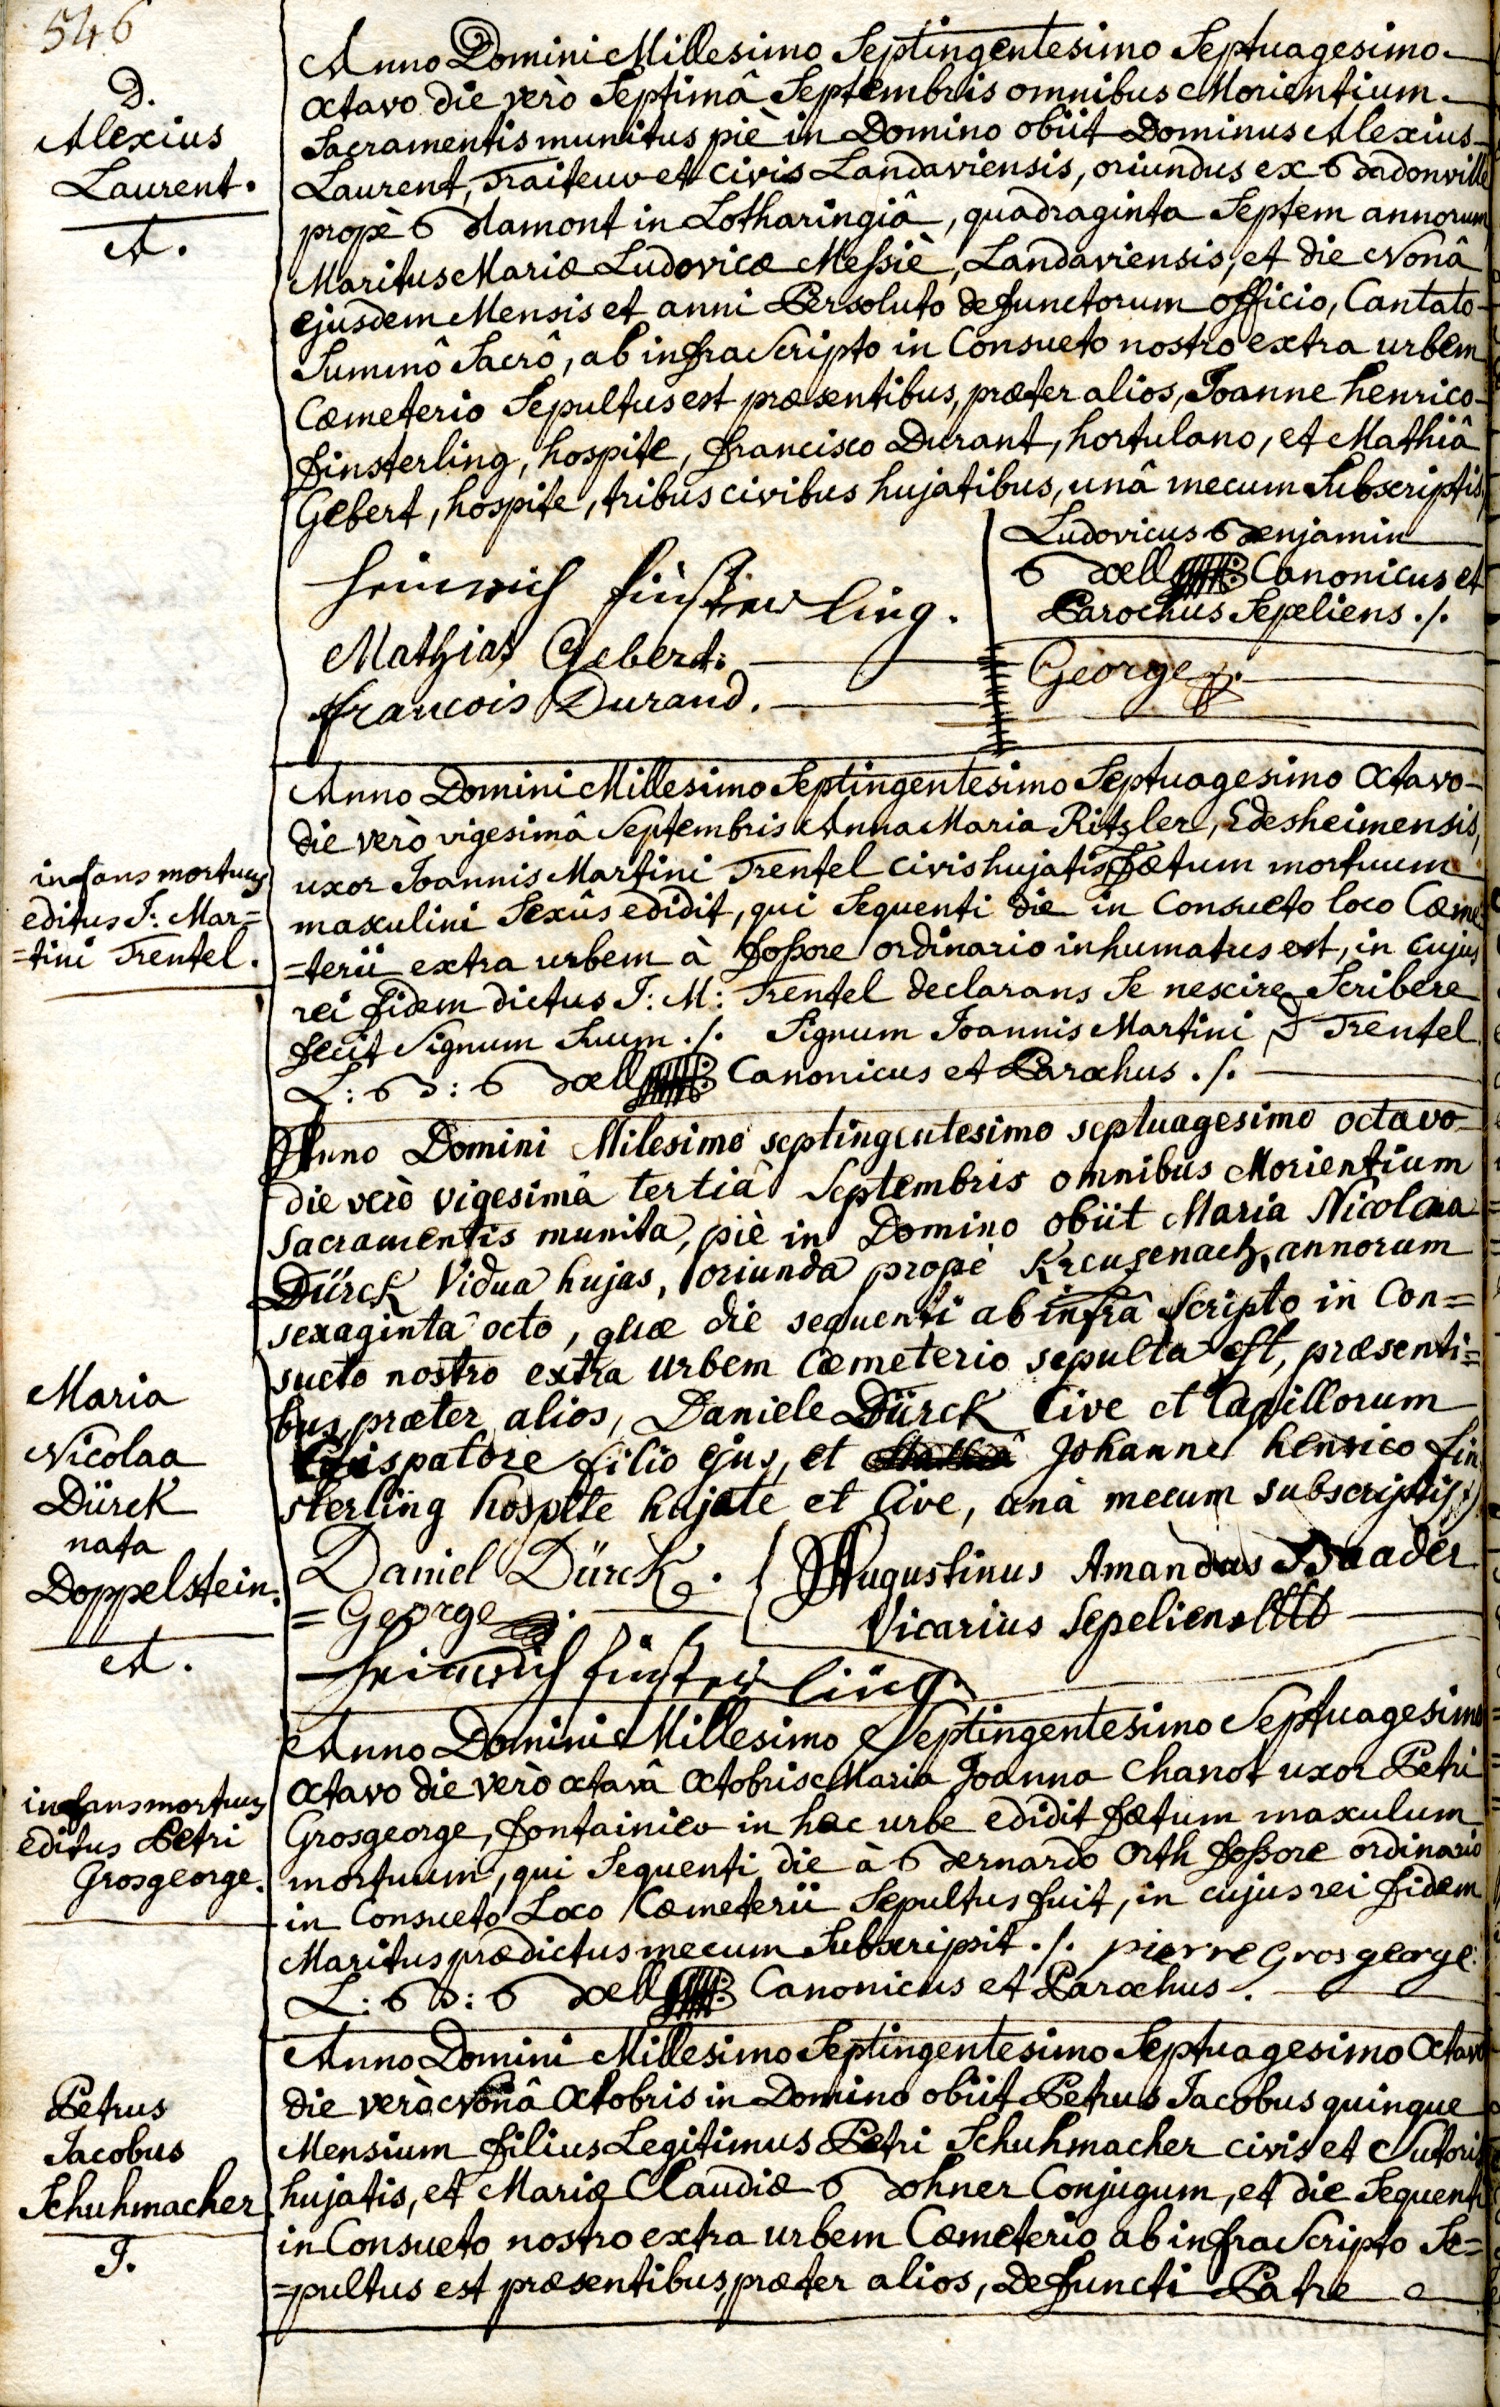 546
D.
Alexius
Laurent.
A.
Anno Domini Millesimo Septingentesimo Septuagesimo
octavo die verò Septimâ Septembris omnibus Morientium
Sacramentis munitus piè in Domino obiit Dominus Alexius
Laurent, Traiteur et civis Landaviensis, oriundus ex Badonville
propè Blamont in Lotharingiâ, quadraginta Septem annorum
Maritus Mariæ Ludovicæ Messiè, Landaviensis, et die Nonâ
ejusdem Mensis et anni Persoluto defunctorum officio, Cantato
Summô Sacrô, ab infra Scripto in Consueto nostro extra urbem
Cœmeterio Sepultus est præsentibus, præter alios, Joanne henrico
finsterling, hospite, francisco Durant, hortulano, et Mathiâ
Gebert, hospite, tribus civibus hujatibus, unâ mecum Subscriptis
Ludovicus Benjamin
Boell Canonicus et
Parochus Sepeliens ./.
heinrich finsterling.
Mathias Gebert.
francois Durand.
George
infans mortuus
editus J: Mar=
=tini Trentel.
Anno Domini Millesimo Septingentesimo Septuagesimo octavo
die verò vigesimâ Septembris Anna Maria Ritzler, Edesheimensis,
uxor Joannis Martini Trentel civis hujatis, fœtum mortuum
masculini Sexûs edidit, qui Sequenti die in Consueto loco Cœme
=terii extra urbem à fossore ordinario inhumatus est, in cujus
rei fidem dictus J: M: Trentel declarans Se nescire Scribere
fecit Signum Suum ./. Signum Joannis Martini Trentel
L: B: Boell Canonicus et Parochus ./.
Maria
Nicolaa
Dürck
nata
Doppelstein.
A.
Anno Domini Milesimo septingentesimo septuagesimo octavo
die verò vigesimâ tertiâ Septembris omnibus Morientium
Sacramentis munita, piè in Domino obiit Maria Nicolaa
Dürck Vidua hujas, oriunda propè Kreuzenach, annorum
sexaginta octo, quæ die sequenti ab infrâ scripto in Con=
sueto nostro extra urbem Cœmeterio sepulta est, præsenti=
bus, præter alios, Daniele Dürck Cive et Capillorum
Crispatore filio ejus, et Johanne henrico fin
sterling hospite hujate et Cive, unà mecum subscriptis
Daniel Dürck.
Augustinus Amandus Baader
=George
Vicarius Sepeliens
heinrich finsterling.
infans mortuus
editus Petri
Grosgeorge.
Anno Domini Millesimo Septingentesimo Septuagesimo
octavo die verò octavâ octobris Maria Joanna Chanot uxor Petri
Grosgeorge, fontainier in hac urbe edidit fœtum masculum
mortuum, qui Sequenti die à Bernardo Orth fossore ordinario
in Consueto Loco Cœmeterii Sepultus fuit, in cujus rei fidem
Maritus prædictus mecum Subscripsit ./. pierre Grosgeorge.
L: B: Boell Canonicus et Parochus.
Petrus
Jacobus
Schuhmacher
J.
Anno Domini Millesimo Septingentesimo Septuagesimo Octavo
die verò Nonâ Octobris in Domino obiit Petrus Jacobus quinque
Mensium filius Legitimus Petri Schuhmacher civis et Sutoris
hujatis, et Mariæ Claudiæ Bohner Conjugum, et die Sequenti
in Consueto nostro extra urbem Cœmeterio ab infra Scripto Se=
=pultus est præsentibus, præter alios, Defuncti Patre